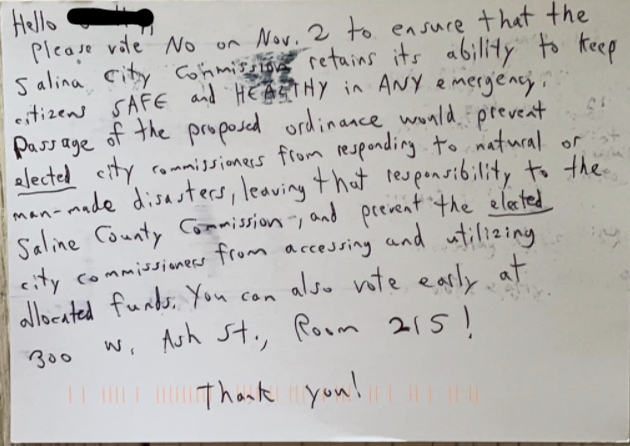 Hello
Please vote No on Nov. 2 to ensure that the
Salina City Commission retains its ability to keep
citizens SAFE and HEALTHY in ANY emergency.
Passage of the proposed ordinance would prevent
elected city commissioners from responding to natural or
man-made disasters, leaving that responsibility to the
Saline County Commission, and prevent the elected
city commissioners from accessing and utilizing
allocated funds. You can also vote early at
300 W. Ash St., Room 215!
Thank you!